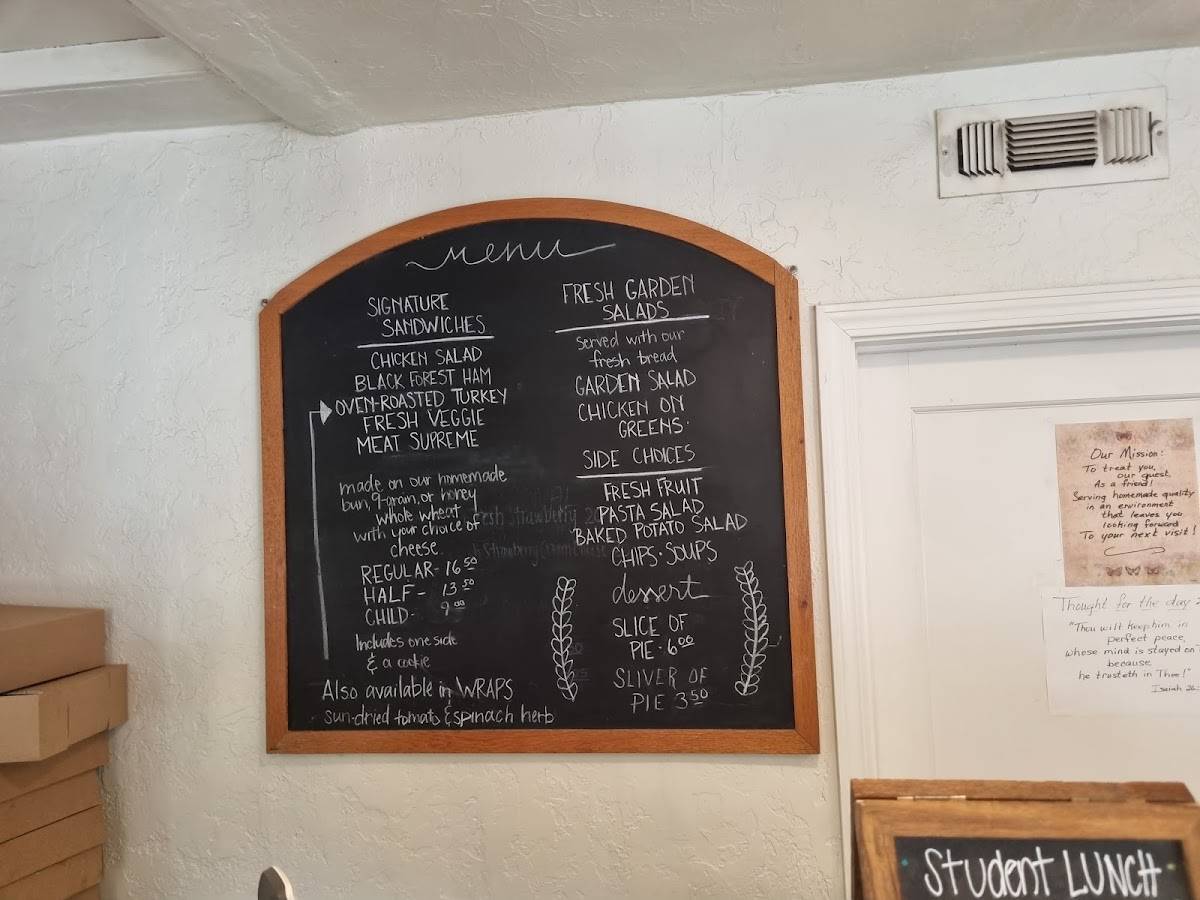 menu
SIGNATURE
SANDWICHES
CHICKEN SALAD
BLACK FOREST HAM
OVEN-ROASTED TURKEY
FRESH VEGGIE
MEAT SUPREME
made on our homemade
bun, 9-grain, or honey
whole wheat
with your choice of
cheese.
REGULAR- 16 50
HALF- 13 50
CHILD- 9 00
Includes one side
& a cookie
Also available in WRAPS
sun-dried tomato & spinach herb
FRESH GARDEN
SALADS
served with our
fresh bread
GARDEN SALAD
CHICKEN ON
GREENS.
SIDE CHOICES
FRESH FRUIT
PASTA SALAD
BAKED POTATO SALAD
CHIPS · SOUPS
dessert
SLICE OF
PIE · 6 00
SLIVER OF
PIE 3 50
Our Mission:
To treat you,
our guest,
As a friend!
Serving homemade quality
in an environment
that leaves you
looking forward
To your next visit!
Thought for the day
"Thou wilt keep him in
perfect peace,
whose mind is stayed on
because
he trusteth in Thee!"
Isaiah 26:
STUDENT LUNCH